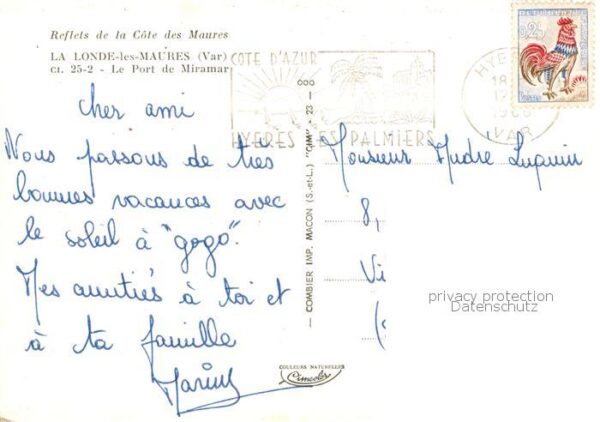 Reflets de la Côte des Maures
LA LONDE-les-MAURES (Var)
Cl. 25-2 - Le Port de Miramar
COTE D'AZUR
HYERES LES PALMIERS
HYERES
18
VAR
0,25
cher ami
Nous passons de très
bonnes vacances avec
le soleil à "gogo".
Mes amitiés à toi et
à ta famille
COMBIER IMP. MACON (S.-et-L.) "CIM" - 23 -
Monsieur Andre
8,
Vi
(
privacy protection
Datenschutz
COULEURS NATURELLES
Cimcolor